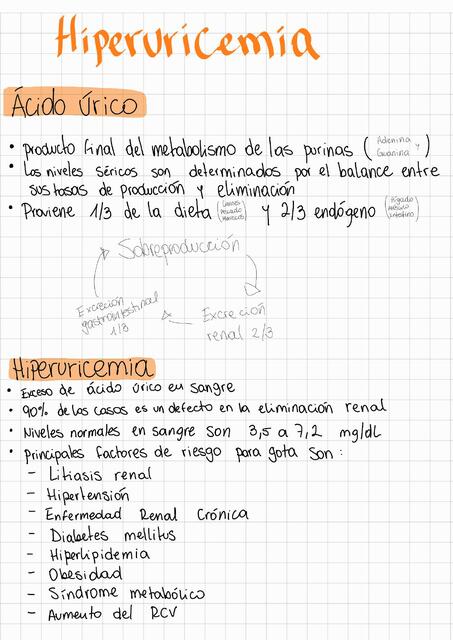 Hiperuricemia
Ácido Úrico
• Producto final del metabolismo de las purinas (Adenina y Guanina)
• Los niveles séricos son determinados por el balance entre
sus tasas de producción y eliminación
• Proviene 1/3 de la dieta (Carnes pescado mariscos) y 2/3 endógeno (Hígado músculo intestino)
Sobreproducción
Excreción
gastrointestinal
1/3
Excreción
renal 2/3
Hiperuricemia
• Exceso de ácido úrico en sangre
• 90% de los casos es un defecto en la eliminación renal
• Niveles normales en sangre son 3,5 a 7,2 mg/dL
• Principales factores de riesgo para gota son:
- Litiasis renal
- Hipertensión
- Enfermedad Renal Crónica
- Diabetes mellitus
- Hiperlipidemia
- Obesidad
- Síndrome metabólico
- Aumento del RCV